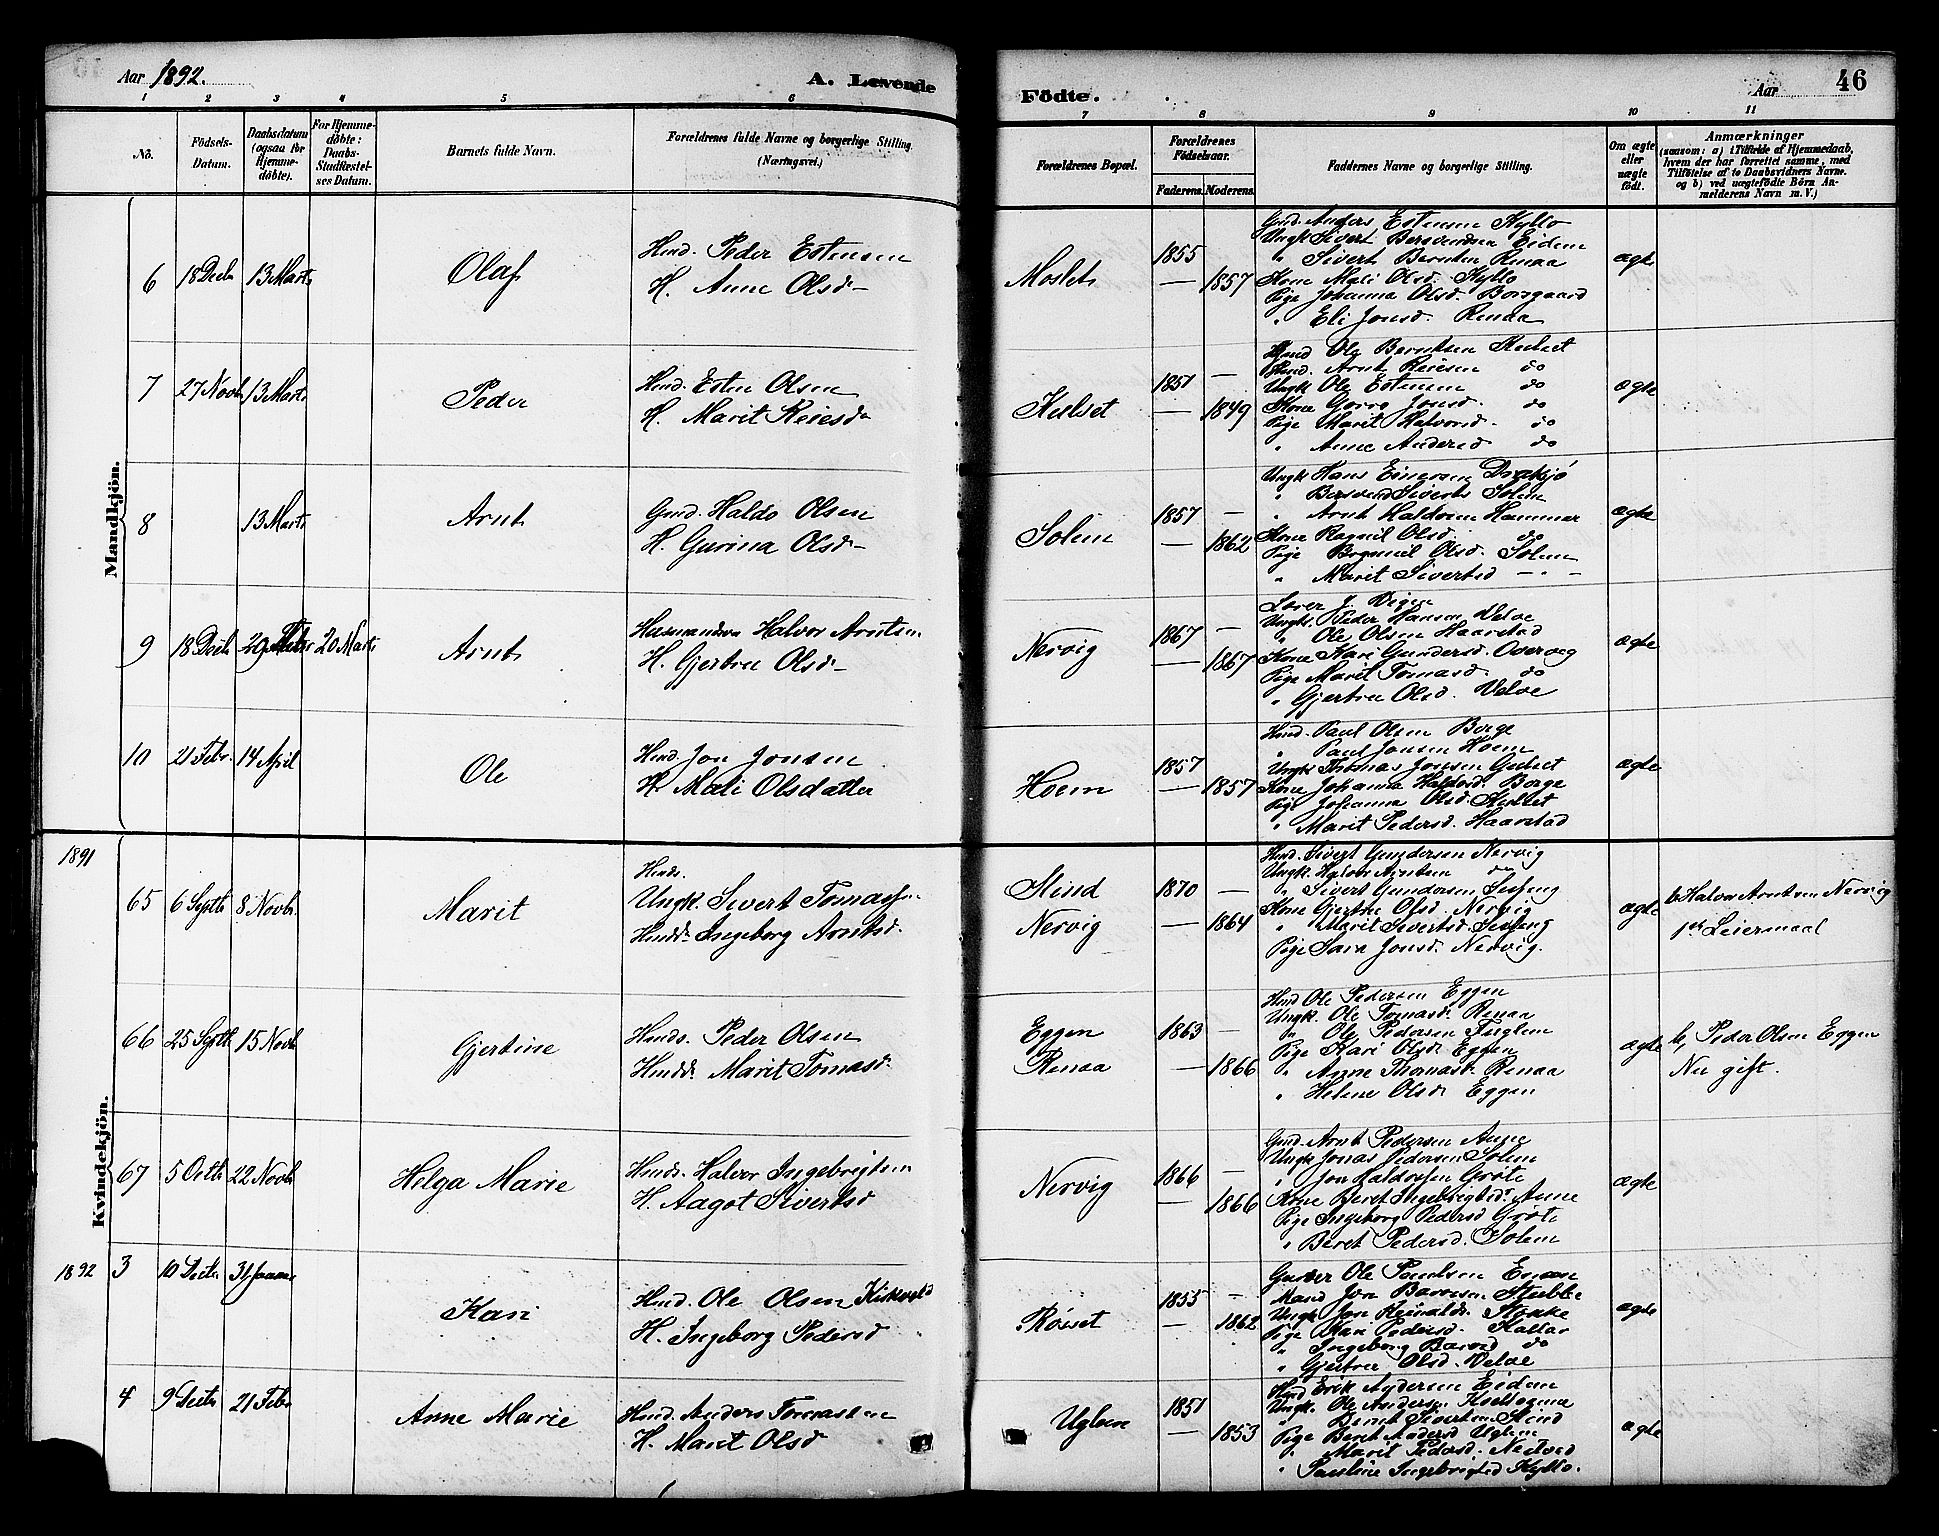 Aar 1892.
A. Levende
Födte.
Aar
46
1 2 3 4 5 6 7 8 9 10 11
No.
Födsels-Datum.
Daabsdatum (ogsaa for Hjemme-döbte).
For Hjemme-döbte: Daabs-Stadfæstel-ses Datum.
Barnets fulde Navn.
Forældrenes fulde Navne og borgerlige Stilling. (Næringsvei.)
Forældrenes Bopæl.
Forældrenes Födselsaar.
Faderens. Moderens.
Faddernes Navne og borgerlige Stilling.
Om ægte eller uægte födt.
Anmærkninger
(saasom: a) i Tilfælde af Hjemmedaab, hvem der har forrettet samme, med Tilföielse af to Daabsvidners Navne. og b) ved uægtefödte Börn An-melderens Navn m. V.)
Mandkjön.
6 18 Decbr 13 Marts
Olaf
Hmd. Peder Estensen
H. Anne Olsd
Moslet
1855 —
— 1857
Gmd. Anders Estensen Kyllo
Ungk Sivert Bersvendsen Eidem
" Sivert Berntsen Renaa
Kone Mali Olsd. Kyllo
Pige Johanna Olsd. Borsgaard
" Eli Jonsd. Renaa
ægte
7 27 Novb 13 Marts
Peder
Hmd. Esten Olsen
H. Marit Reiesd
Kulset
1851 —
— 1849
Hmd Ole Berntsen Kulset
Hmd. Arnt Reiesen do
Ungk Ole Estensen do
Kone Gorro Jonsd. do
Pige Marit Halvorsd. do
" Anne Andersd do
ægte
8 13 Marts
Arnt
Gmd. Haldo Olsen
H. Gurina Olsd
Solem
1857 —
— 1862
Ungk Hans Einersen Draksjø
" Bersvend Siverts Solem
" Arnt Haldosen Hammer
Kone Ragnil Olsd. do
Pige Olsd. Solem
" Marit Sivertsd — " —
ægte
9 18 Decbr 20 Marts
Arnt
Husmandssøn Halvor Arntsen
H. Gjertru Olsd
Nervig
1867 —
— 1867
Lærer J. Vigen
Ungk. Peder Hansen Velve
" Ole Olsen Haarstad
Kone Kari Gundersd. Overvig
Pige Marit Tomasd. do
" Gjertru Olsd. Velve
ægte
10 21 Febr. 14 April
Ole
Hmd. Jon Jonsen
H. Mali Olsdatter
Hoem
1857 —
— 1857
Hmd. Paul Olsen Borge
" Paul Jonsen Hoem
Ungk Thomas Jonsen Gulset
Kone Johanna Haldosd. Borge
Pige Johanna Olsd. Kulset
" Marit Pedersd. Haarstad
ægte
1891
Kvindekjön.
65 6 Septbr 8 Novb.
Marit
Hmds.
Ungk. Sivert Tomassen
Hmdd. Ingeborg Arntsd.
Slind
Nervig
1870 —
— 1864
Hmd. Sivert Gundersen Nervig
Ungk. Halvor Arntsen do
" Sivert Gundersen Sesseng
Kone Gjertru Olsd. Nervig
" Marit Sivertsd. Sesseng
Pige Sara Jonsd. Nervig.
ægte
b. Halvor Arntsen Nervig
1ste Leiermaal
66 25 Septbr 15 Novb
Gjertine
Hmds. Peder Olsen
Hmdd. Marit Tomasd.
Eggen
Renaa
1863 —
— 1866
Hmd Ole Pedersen Eggen
Ungk. Ole Tomass. Renaa
" Ole Pedersen Fuglem
Pige Kari Olsd. Eggen
" Anne Thomasd. Renaa
" Helene Olsd. Eggen
ægte
b. Peder Olsen Eggen
Nu gift.
67 5 Octb 22 Novb
Helga Marie
Hmds. Halvor Ingebrigtsen
H. Aagot Sivertsd
Nervig
1866 —
— 1866
Gmd. Arnt Pedersen Aune
Ungk Jonas Pedersen Solem
" Jon Haldorsen Grøte
Kone Beret Ingebrigtsd. Aune
Pige Ingeborg Pedersd Grøte
" Beret Pedersd. Solem
ægte
1892
3 10 Decbr 31 Januar
Kari
Hmd. Ole Olsen Kirkvold
H. Ingeborg Pedersd
Røset
1855 —
— 1862
Ole Paulsen
Mand Jon Stubbe
Ungk. Jon Stokke
Pige Mari Pedersd. Kallar
" Ingeborg do
" Gjertru Olsd. Velve
ægte
4 9 Decbr 21 Febr
Anne Marie
Hmd. Anders Tomassen
H. Marit Olsd
Uglem
1851 —
— 1853
Hmd Erik Andersen Eidem
Ungk. Ole Andersen
" Bernt Sivertsen Slind
Pige Beret Andersd Uglem
" Marit Pedersd.
" Pauline Ingebrigtsd Kyllo.
ægte